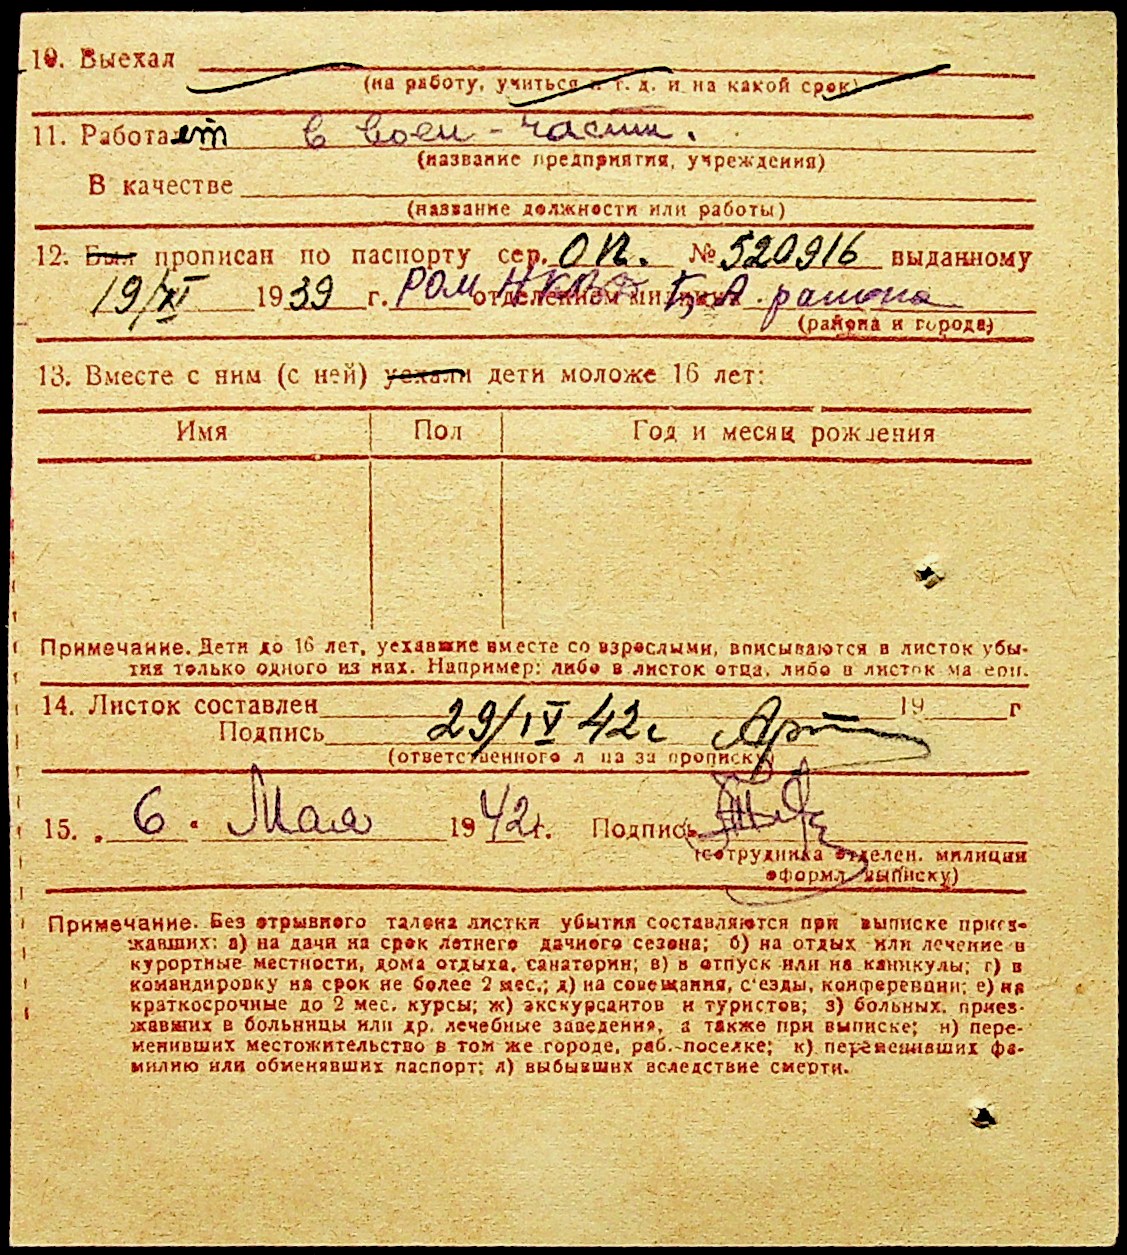 10. Выехал
(на работу, учиться и т. д. и на какой срок)
11. Работает в воен-части.
(название предприятия, учреждения)
В качестве
(название должности или работы)
12. Был прописан по паспорту сер. ОП. № 520916 выданному
19/XI 1939 г. РОМ НКВД отделением милиции Г, А. района
(района и города)
13. Вместе с ним (с ней) уехали дети моложе 16 лет:
Имя Пол Год и месяц рождения
Примечание. Дети до 16 лет, уехавшие вместе со взрослыми, вписываются в листок убы-
тия только одного из них. Например: либо в листок отца, либо в листок матери.
14. Листок составлен 29/IV 42 г 19 г
Подпись
(ответственного лица за прописку)
15. „ 6 " Мая 1942 г. Подпись
(сотрудника отделен. милиции
оформл. выписку)
Примечание. Без отрывного талона листки убытия составляются при выписке приез-
жавших: а) на дачи на срок летнего дачного сезона; б) на отдых или лечение в
курортные местности, дома отдыха, санатории; в) в отпуск или на каникулы; г) в
командировку на срок не более 2 мес.; д) на совещания, с'езды, конференции; е) на
краткосрочные до 2 мес. курсы; ж) экскурсантов и туристов; з) больных, приез-
жавших в больницы или др. лечебные заведения, а также при выписке; и) пере-
менивших местожительство в том же городе, раб. поселке; к) переменивших фа-
милию или обменявших паспорт; л) выбывших вследствие смерти.